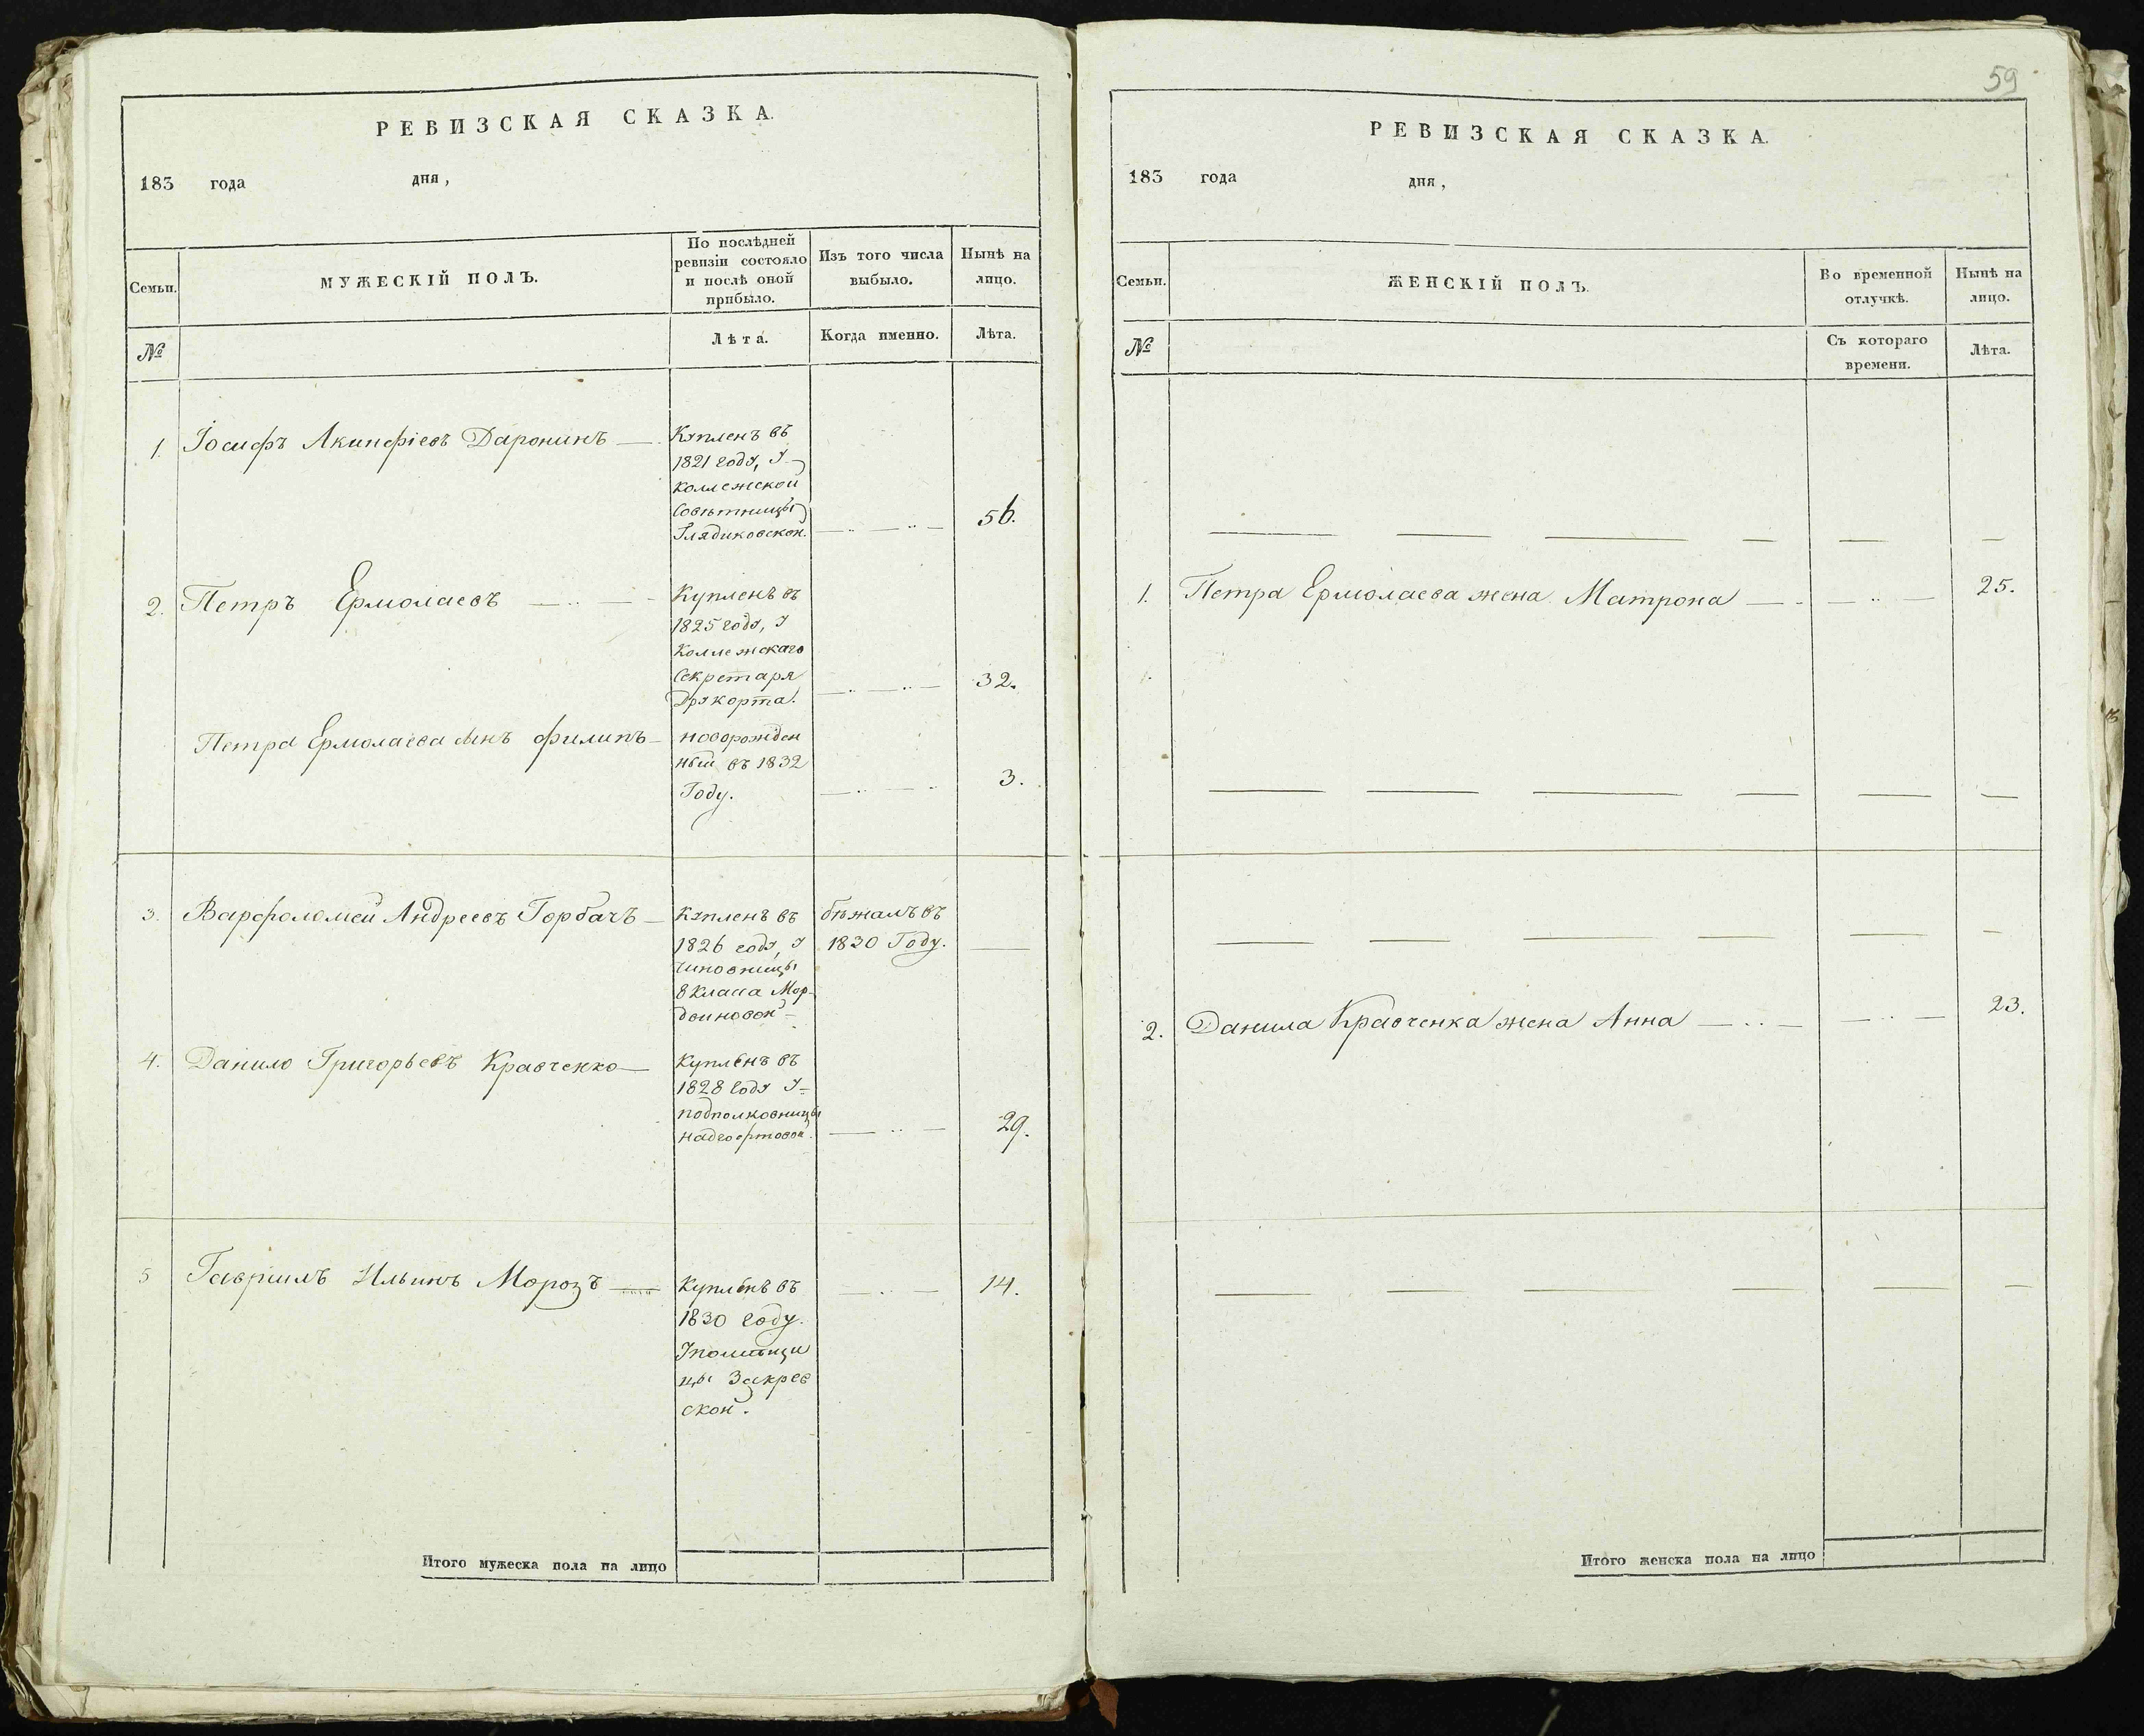 РЕВИЗСКАЯ СКАЗКА.
183 года дня,
Семьи.
МУЖЕСКІЙ ПОЛЪ.
По послѣдней
ревизіи состояло
и послѣ оной
прибыло.
Изъ того числа
выбыло.
Нынѣ на
лицо.
№
Лѣта.
Когда именно.
Лѣта.
1. Іосифъ Акинфіевъ Даронинъ
Купленъ въ
1821 году, у
коллежской
Совѣтницы
Глядиковской.
56.
2. Петръ Ермолаевъ
Купленъ въ
1825 году, у
Коллежскаго
Секретаря
Друкорта.
32.
Петра Ермолаева сынъ Филипъ
новорожден
ный въ 1832
Году.
3.
3. Варфоломей Андреевъ Горбачъ
Купленъ въ
1826 году, у
чиновницы
8 класа Мор-
двиновой
бѣжалъ въ
1830 Году.
4. Данило Григорьевъ Кравченко
Купленъ въ
1828 году у
подполковницы
29.
5 Гавриилъ Ильинъ Морозъ
Купленъ въ
1830 году.
Упомѣщи
цы Закрев
ской.
14.
Итого мужеска пола на лицо
59
РЕВИЗСКАЯ СКАЗКА.
183 года дня,
Семьи.
ЖЕНСКІЙ ПОЛЪ.
Во временной
отлучкѣ.
Нынѣ на
лицо.
№
Съ котораго
времени.
Лѣта.
1. Петра Ермолаева жена Матрона 25.
2. Данила Кравченка жена Анна 23.
Итого женска пола на лицо